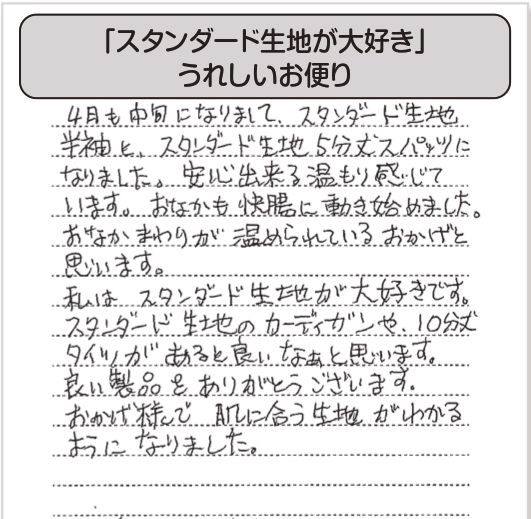 「スタンダード生地が大好き」
うれしいお便り
4月も中旬になりまして、スタンダード生地
半袖と、スタンダード生地5分丈スパッツに
なりました。安心出来る温もり感じて
います。おなかも快腸に動き始めました。
おなかまわりが温められているおかげと
思います。
私はスタンダード生地が大好きです。
スタンダード生地のカーディガンや、10分丈
タイツがあると良いなぁと思います。
良い製品をありがとうございます。
おかげ様んで肌に合う生地がわかる
ようになりました。